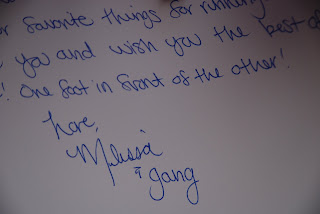 favorite things for running
you and wish you the best of
! One foot in front of the other!
Love,
Melissa
& gang